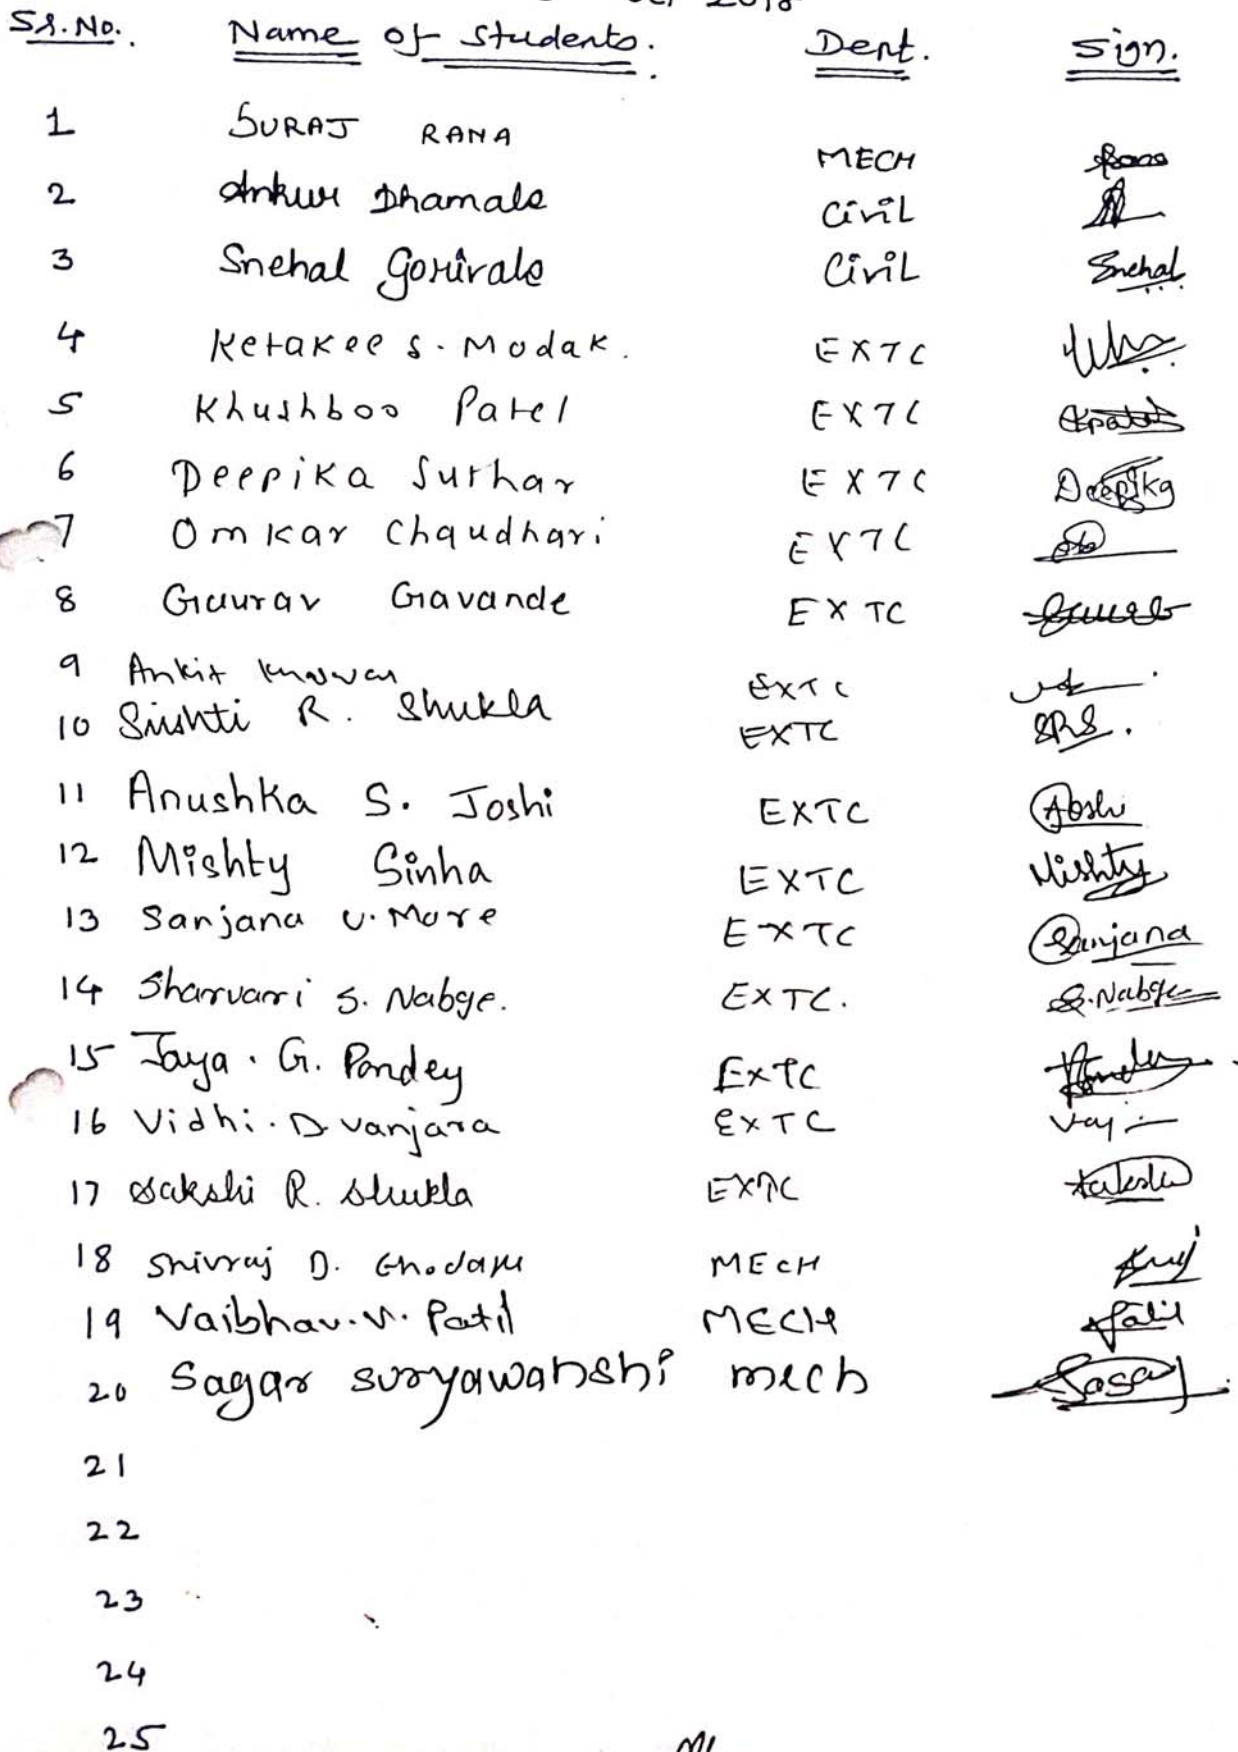 2018
Sr.No. Name of students. Dept. Sign.
1 SURAJ RANA MECH
2 Ankur Dhamale Civil
3 Snehal Gorivale Civil Snehal
4 Ketakee S. Modak. EXTC
5 Khushboo Patel EXTC
6 Deepika Suthar EXTC Deepika
7 Omkar Chaudhari EXTC
8 Gaurav Gavande EXTC
9 Ankit EXTC
10 Srishti R. Shukla EXTC SRS.
11 Anushka S. Joshi EXTC
12 Mishty Sinha EXTC Mishty
13 Sanjana U. More EXTC Sanjana
14 Sharvari S. Nabge. EXTC. S.Nabge
15 Jaya . G. Pandey EXTC
16 Vidhi . D vanjara EXTC
17 Sakshi R. Shukla EXTC
18 Shivraj D. MECH
19 Vaibhav. V. Patil MECH Patil
20 Sagar suryawanshi mech Sagar
21
22
23
24
25